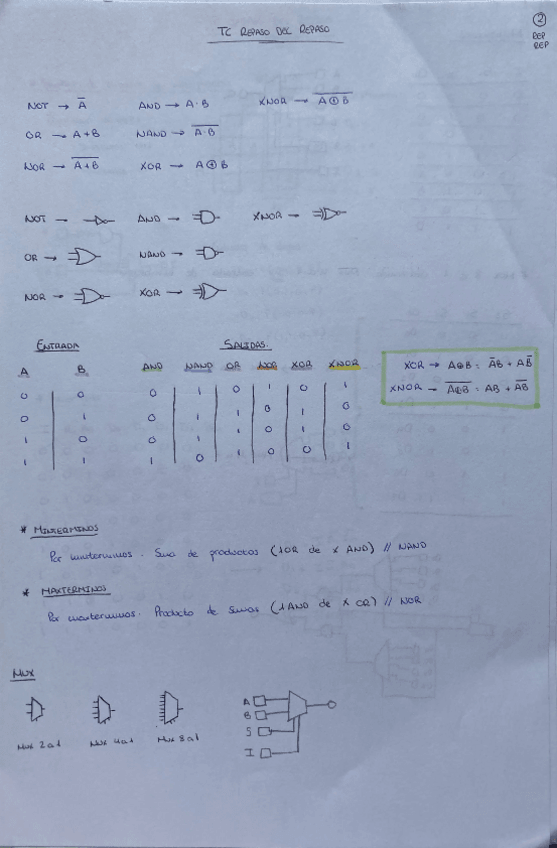 TC REPASO DEL REPASO
2
REP
REP
NOT → A̅ AND → A·B XNOR → A̅ ̅⊕̅ ̅B̅
OR → A+B NAND → A̅·̅B̅
NOR → A̅+̅B̅ XOR → A⊕B
NOT → AND → XNOR →
OR → NAND →
NOR → XOR →
ENTRADA SALIDAS.
A B AND NAND OR NOR XOR XNOR
0 0 0 1 0 1 0 1
0 1 0 1 1 0 1 0
1 0 0 1 1 0 1 0
1 1 1 0 1 0 0 1
XOR → A⊕B = A̅B + AB̅
XNOR → A̅⊕̅B̅ = AB + A̅B̅
* MINTERMINOS
Por minterminos. Suma de productos (1 OR de X AND) // NAND
* MAXTERMINOS
Por maxterminos. Producto de sumas (1 AND de X OR) // NOR
MUX
A
B
S
I
Mux 2 a 1 Mux 4 a 1 Mux 8 a 1